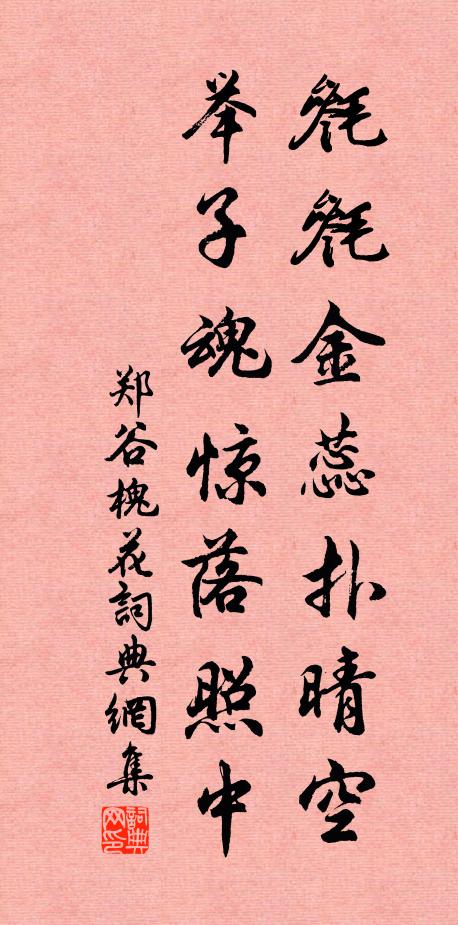 毵毵金蕊扑晴空
举子魂惊落照中
郑谷槐花詞典網集
詞典
网印